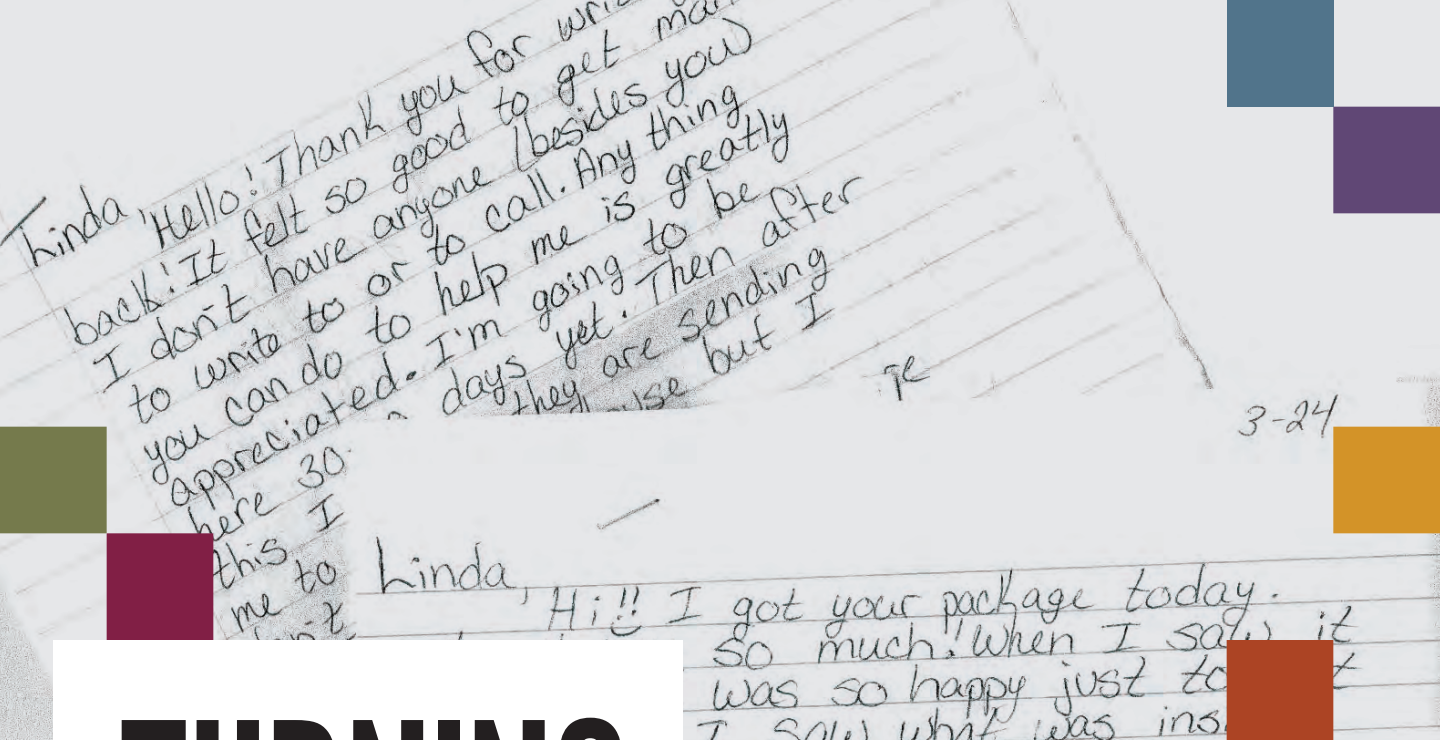 Linda,
Hello! Thank you for
back! It felt so good to get
I don't have anyone (besides you)
to write to or to call. Any thing
you can do to help me is greatly
appreciated. I'm going to be
here 30 days yet. Then after
this I they are sending
me to but I
3-24
Linda,
Hi!! I got your package today.
so much! When I saw it
was so happy just to
I saw what was
TURNING